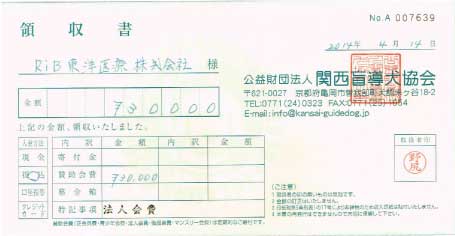 No.A 007639
領収書
2014年 4月 14日
RiB東洋医療 株式会社 様
公益財団法人 関西盲導犬協会
〒621-0027 京都府亀岡市曽我部町犬飼未ケ谷18-2
TEL:0771(24)0323 FAX:0771(25)1054
E-mail:info@kansai-guidedog.jp
金額 ¥30000
上記の金額、領収いたしました。
入金方法 内訳 金額 内訳 金額
現金 寄付金
振込 賛助会費 ¥30,000
口座振替 募金箱
クレジットカード 特記事項 法人会費
取扱者印
(ご注意)